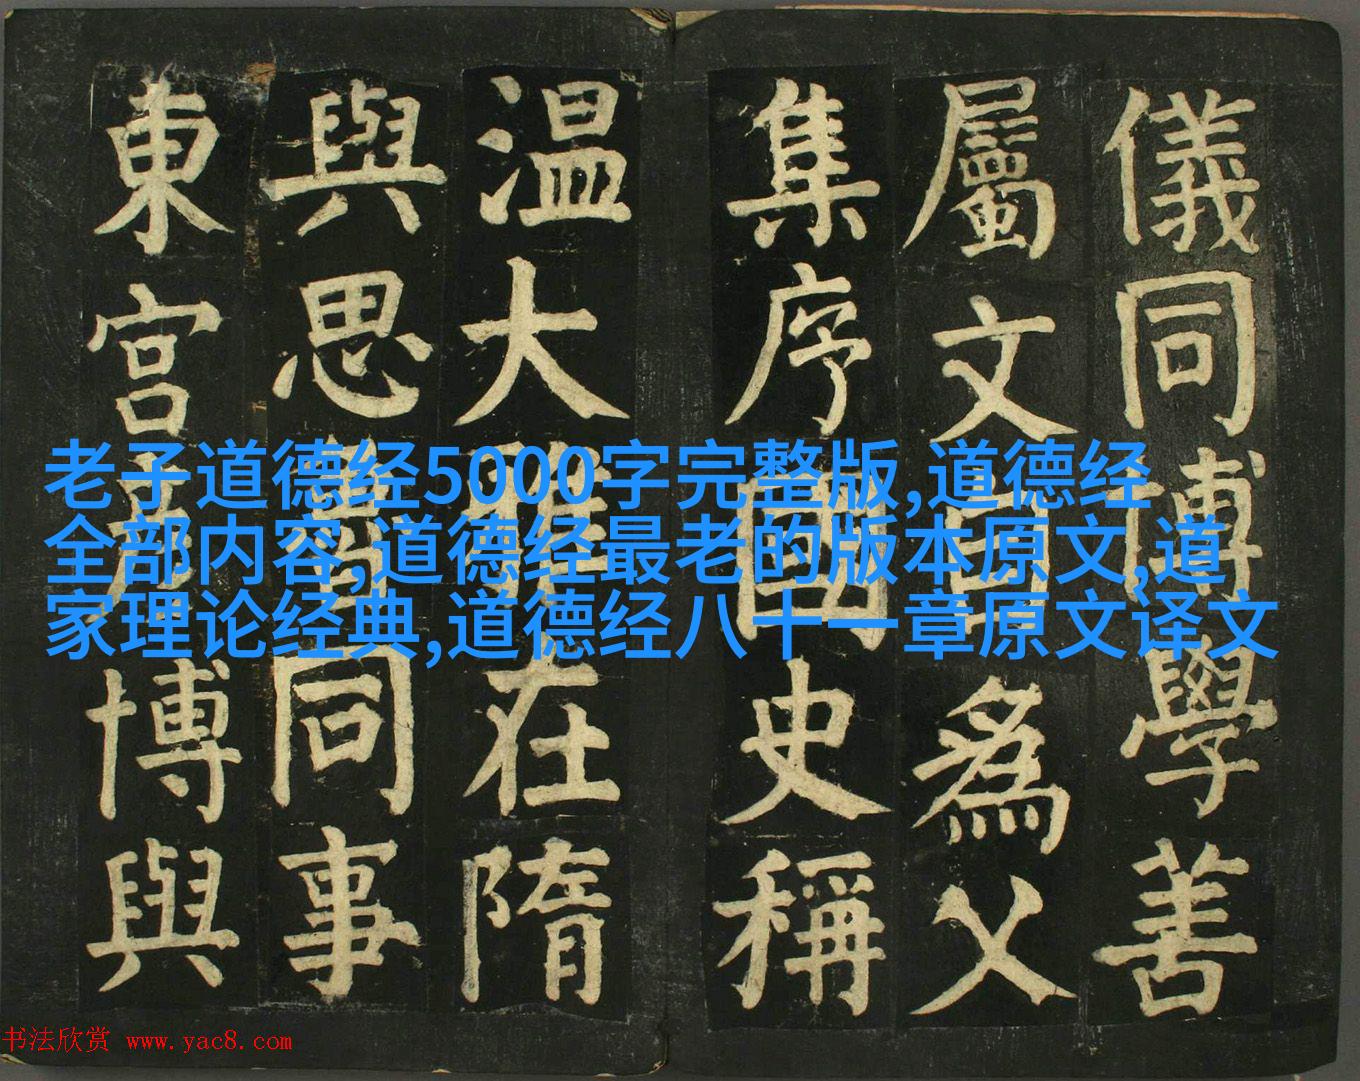 儀同博學善
屬文自為父
集序國史稱
温大雅在隋
與思同事
東宮彥博與
老子道德经5000字完整版,道德经
全部内容,道德经最老的版本原文,道
家理论经典,道德经八十一章原文译文
书法欣赏 www.yac8.com